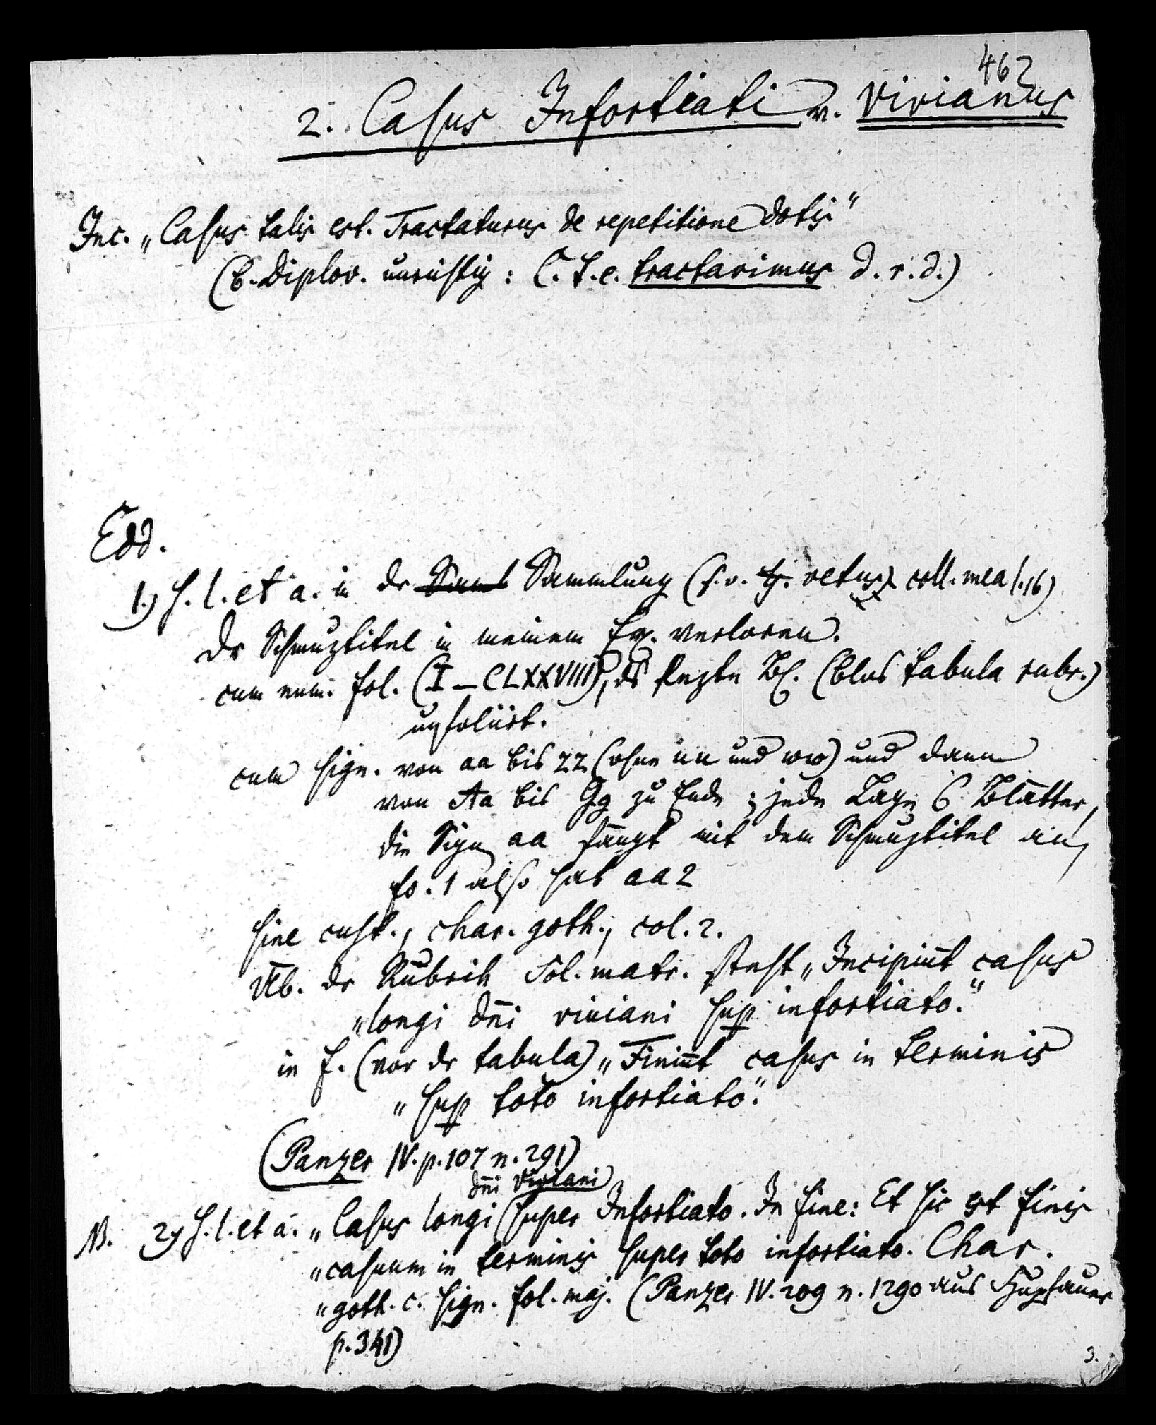 462
2. Casus Infortiati v. Vivianus
Inc. „Casus talis est. Tractaturus de repetitione dotis"
(b. Diplov. unrichtig: C. t. e. tractavimus d. r. d.)
Edd.
1.) s. l. et a. in der Saml Sammlung (s. v. vetus) coll. mea f. 16)
Der Schmuztitel in meinem Ex. verloren.
cum num. fol. (I–CLXXVIII), das letzte Bl. (blos tabula rubr.)
unfoliirt.
cum sign. von aa bis zz (ohne uu und ww) und dann
von Aa bis Gg zu Ende; jede Lage 6 Blätter,
die Sign aa fängt mit dem Schmuztitel an,
fo. 1 also hat aa2
sine cust., char. goth., col. 2.
Üb. der Rubrik Sol. matr. steht „Incipiūt casus
„longi dn̄i viviani sup infortiato."
in f. (vor der tabula) „Finiūt casus in terminis
„sup toto infortiato."
(Panzer IV. p. 107 n. 291)
dn̄i Viviani
N. 2) s. l. et a. „Casus longi super Infortiato. In fine: Et sic est finis
„casuum in terminis super toto infortiato. Char.
„goth. c. sign. fol. maj. (Panzer IV. 209 n. 1290 aus Hupfauer
p. 341)
3.